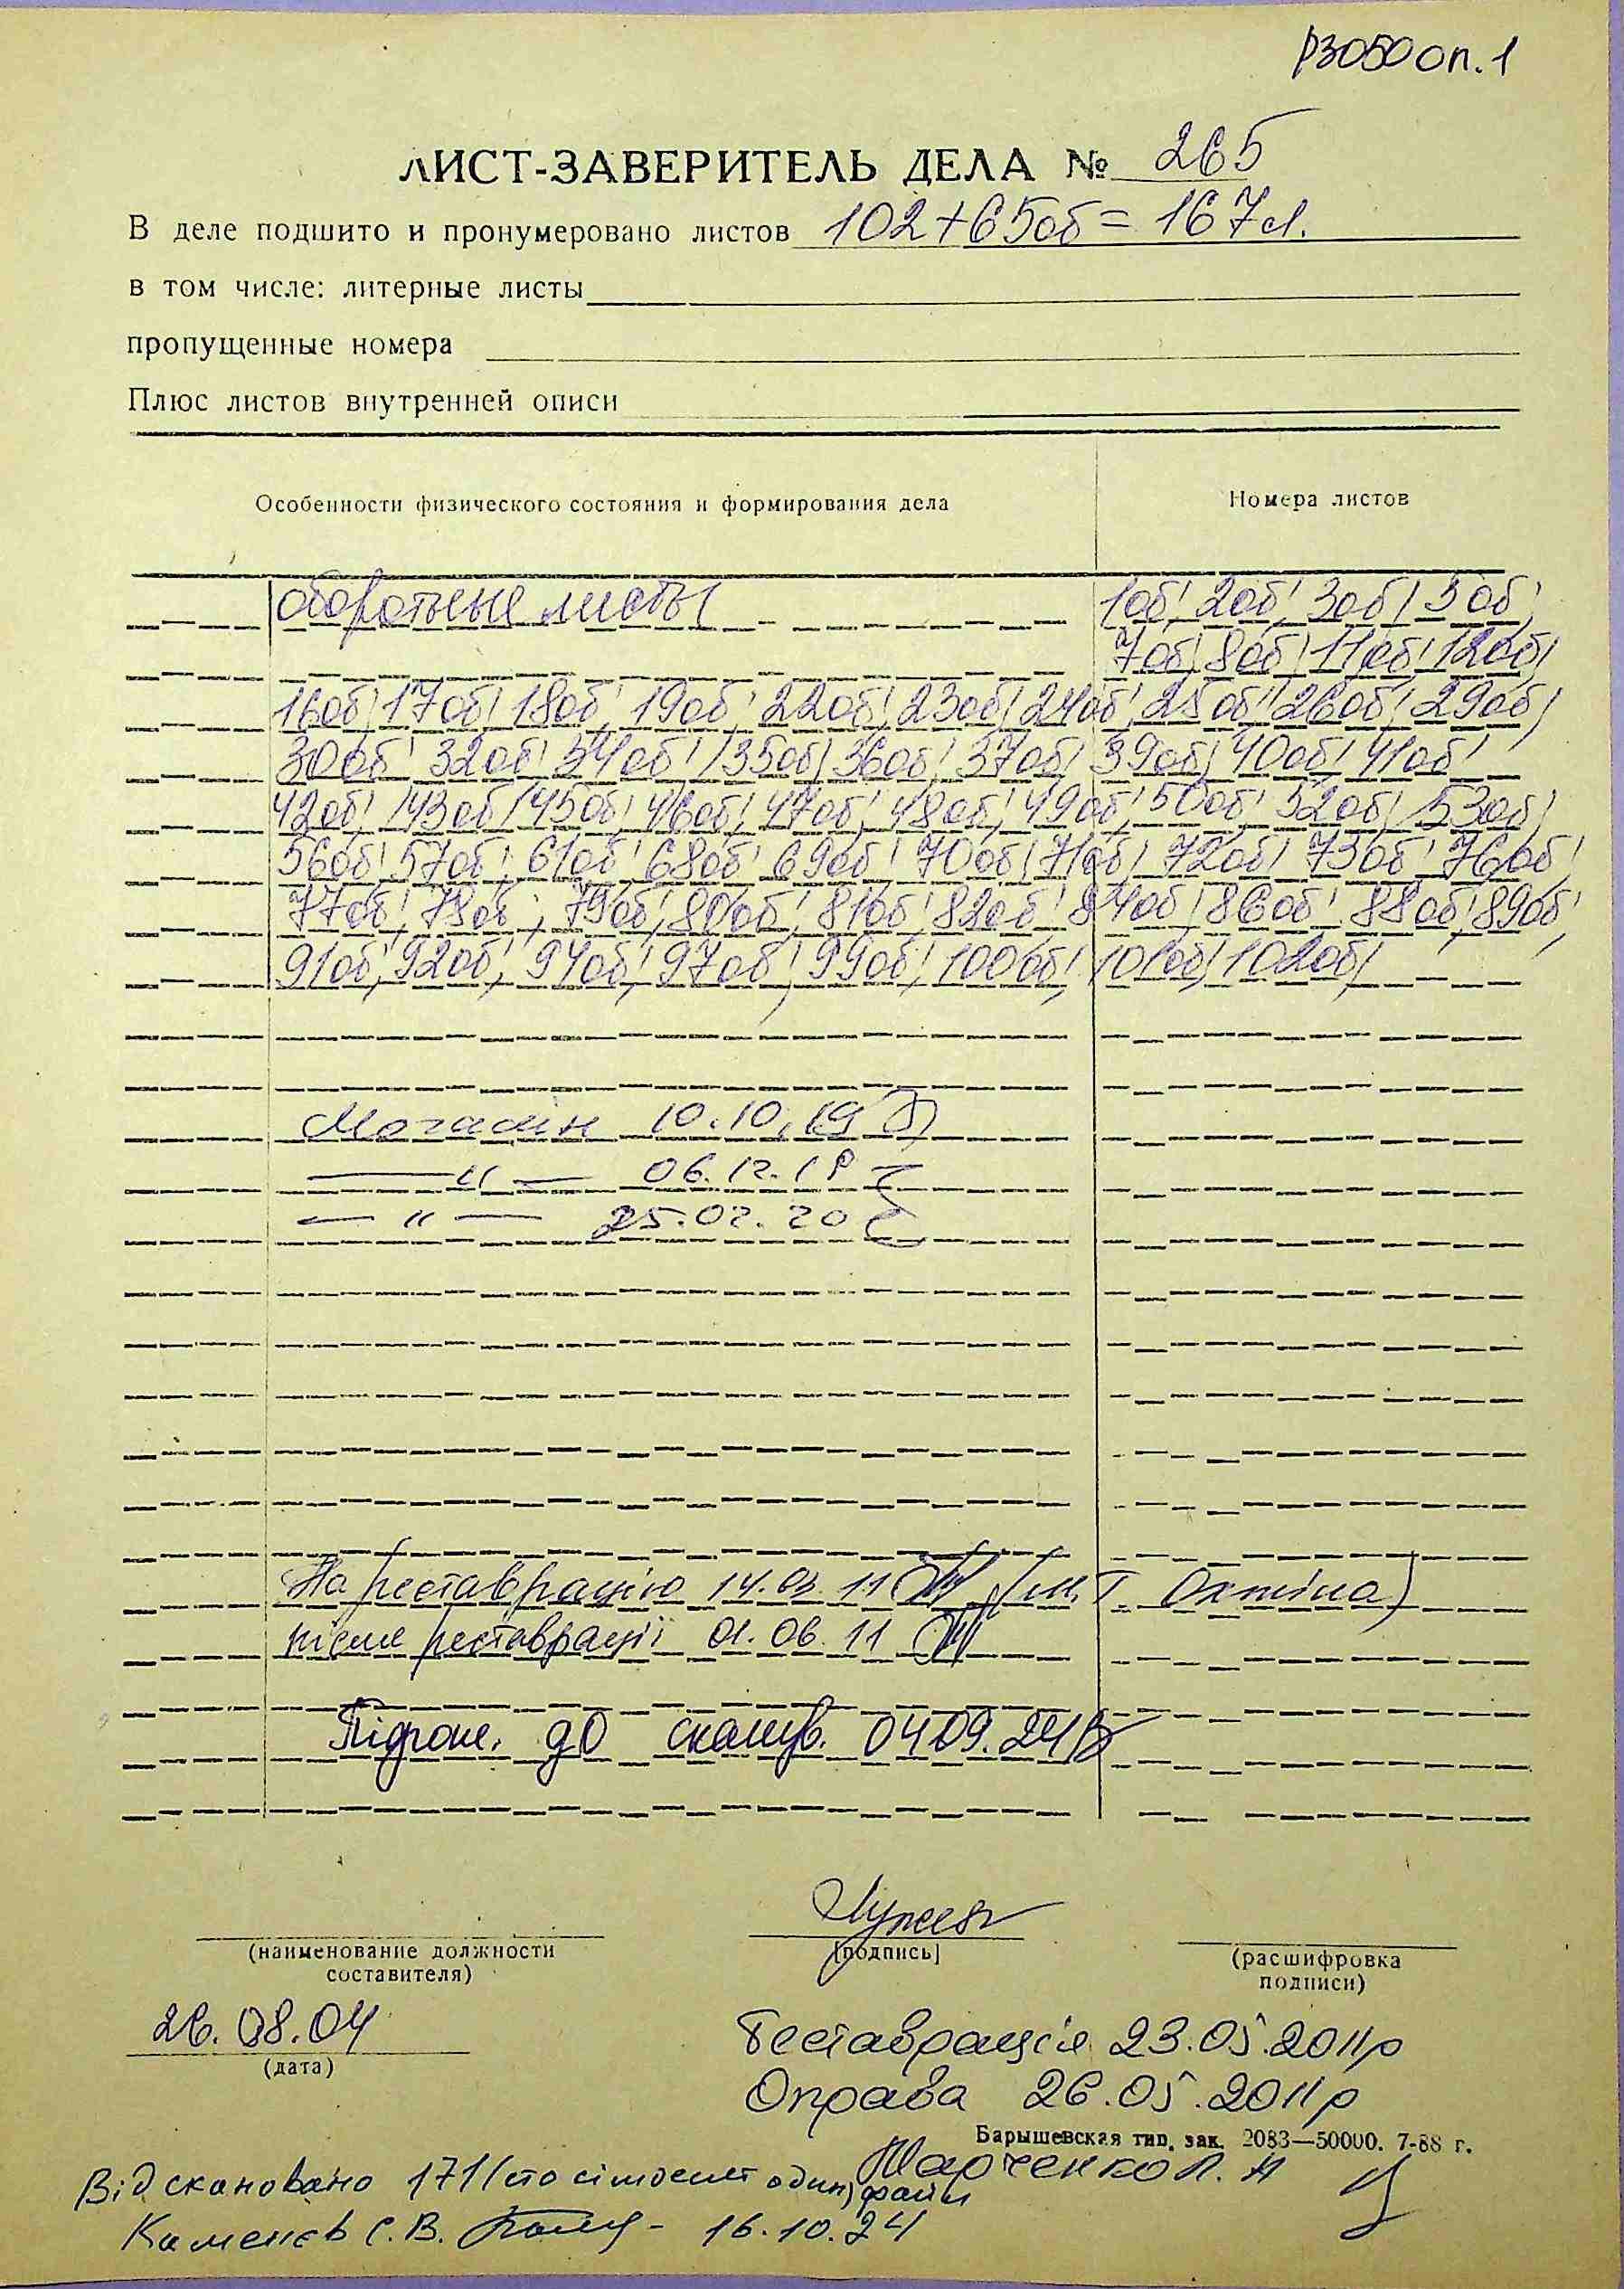 Р3050 оп. 1
ЛИСТ-ЗАВЕРИТЕЛЬ ДЕЛА № 265
В деле подшито и пронумеровано листов 102+65об = 167 л.
в том числе: литерные листы
пропущенные номера
Плюс листов внутренней описи
Особенности физического состояния и формирования дела
Номера листов
оборотные листы 1об, 2об, 3об, 5об,
7об, 8об, 11об, 12об,
16об, 17об, 18об, 19об, 22об, 23об, 24об, 25об, 26об, 29об,
30об, 32об, 34об, 35об, 36об, 37об, 39об, 40об, 41об,
42об, 43об, 45об, 46об, 47об, 48об, 49об, 50об, 52об, 53об,
56об, 57об, 61об, 68об, 69об, 70об, 71об, 72об, 73об, 76об,
77об, 78об, 79об, 80об, 81об, 82об, 84об, 86об, 88об, 89об,
91об, 92об, 94об, 97об, 99об, 100об, 101об, 102об,
10.10.19
— " — 06.12.19
— " — 25.02.20
На реставрацію 14.03.11
після реставрації 01.06.11
Підгот. до сканув. 04.09.24
(наименование должности
составителя)
[подпись]
(расшифровка
подписи)
26.08.04
(дата)
Реставрація 23.05.2011р
Оправа 26.05.2011р
Барышевская тип. зак. 2083—50000. 7-88 г.
Марченко Л. А
Відскановано 171 (сто сімдесят один) файл
Каменєв С.В. 16.10.24